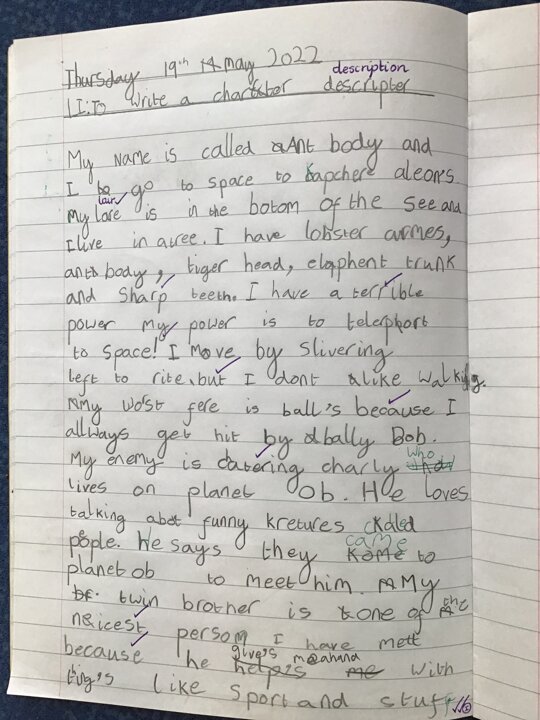 Thursday 19th May 2022
description
LI: To write a charfttor descripter
My name is called Ant body and
I go to space to capchere aleons.
lair
My lare is in the botom of the see and
I live in atree. I have lobster aurmes,
ants body, tiger head, elaphent trunk
and Sharp teeth. I have a terrible
power my power is to telerphort
to space! I Move by Slivering
left to rite, but I dont alike walking.
My wo'st fere is ball's because I
allways get hit by dbally Bob.
My enemy is datering charly who
lives on planet Ob. He loves
talking abot funny kretures ckaled
people. he says they came to
planet ob to meet him. My
twin brother is one of the
neicest persom I have mett
because he give's me ahand with
thig's like Sport and stuff